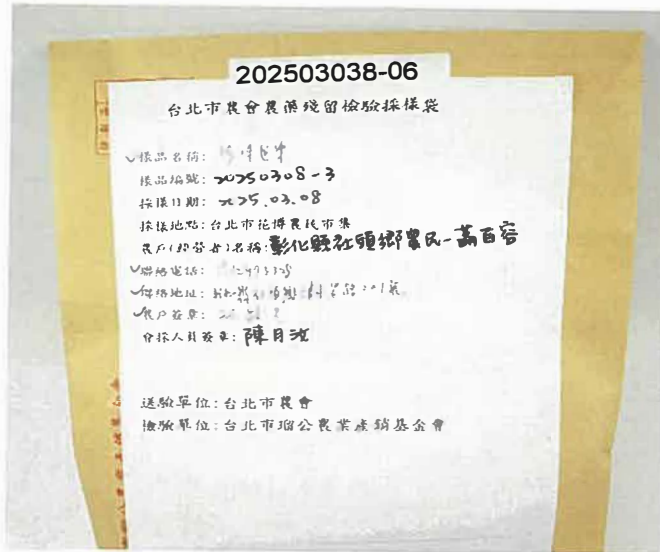 202503038-06
台北市農會農藥殘留檢驗採樣袋
✓樣品名稱:
樣品編號: 20250308-3
採樣日期: 2025.03.08
採樣地點: 台北市花博農民市集
農戶(經營者)名稱: 彰化縣社頭鄉農民-蕭百容
✓聯絡電話:
✓聯絡地址:
✓農戶簽章:
會採人員簽章: 陳月汝
送驗單位: 台北市農會
檢驗單位: 台北市瑠公農業產銷基金會